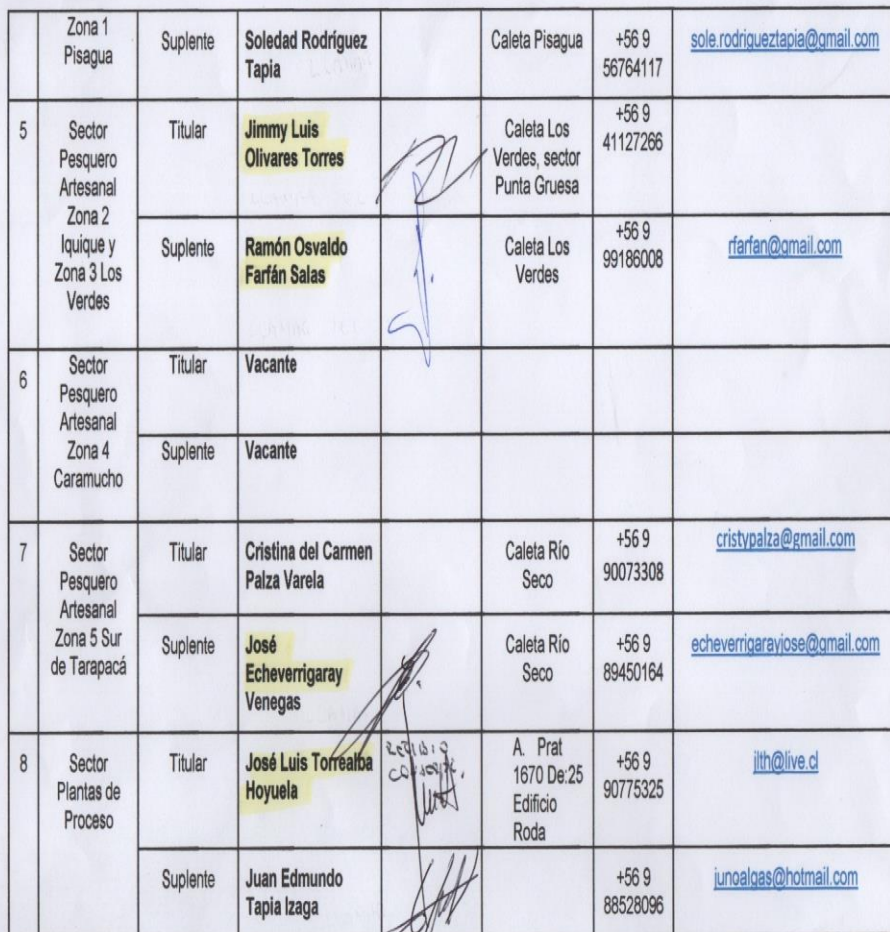 Zona 1
Pisagua
Suplente
Soledad Rodríguez
Tapia
Caleta Pisagua
+56 9
56764117
sole.rodrigueztapia@gmail.com
5
Sector
Pesquero
Artesanal
Zona 2
Iquique y
Zona 3 Los
Verdes
Titular
Jimmy Luis
Olivares Torres
Caleta Los
Verdes, sector
Punta Gruesa
+56 9
41127266
Suplente
Ramón Osvaldo
Farfán Salas
Caleta Los
Verdes
+56 9
99186008
rfarfan@gmail.com
6
Sector
Pesquero
Artesanal
Zona 4
Caramucho
Titular
Vacante
Suplente
Vacante
7
Sector
Pesquero
Artesanal
Zona 5 Sur
de Tarapacá
Titular
Cristina del Carmen
Palza Varela
Caleta Río
Seco
+56 9
90073308
cristypalza@gmail.com
Suplente
José
Echeverrigaray
Venegas
Caleta Río
Seco
+56 9
89450164
echeverrigarayjose@gmail.com
8
Sector
Plantas de
Proceso
Titular
José Luis Torrealba
Hoyuela
A. Prat
1670 De:25
Edificio
Roda
+56 9
90775325
jlth@live.cl
Suplente
Juan Edmundo
Tapia Izaga
+56 9
88528096
junoalgas@hotmail.com